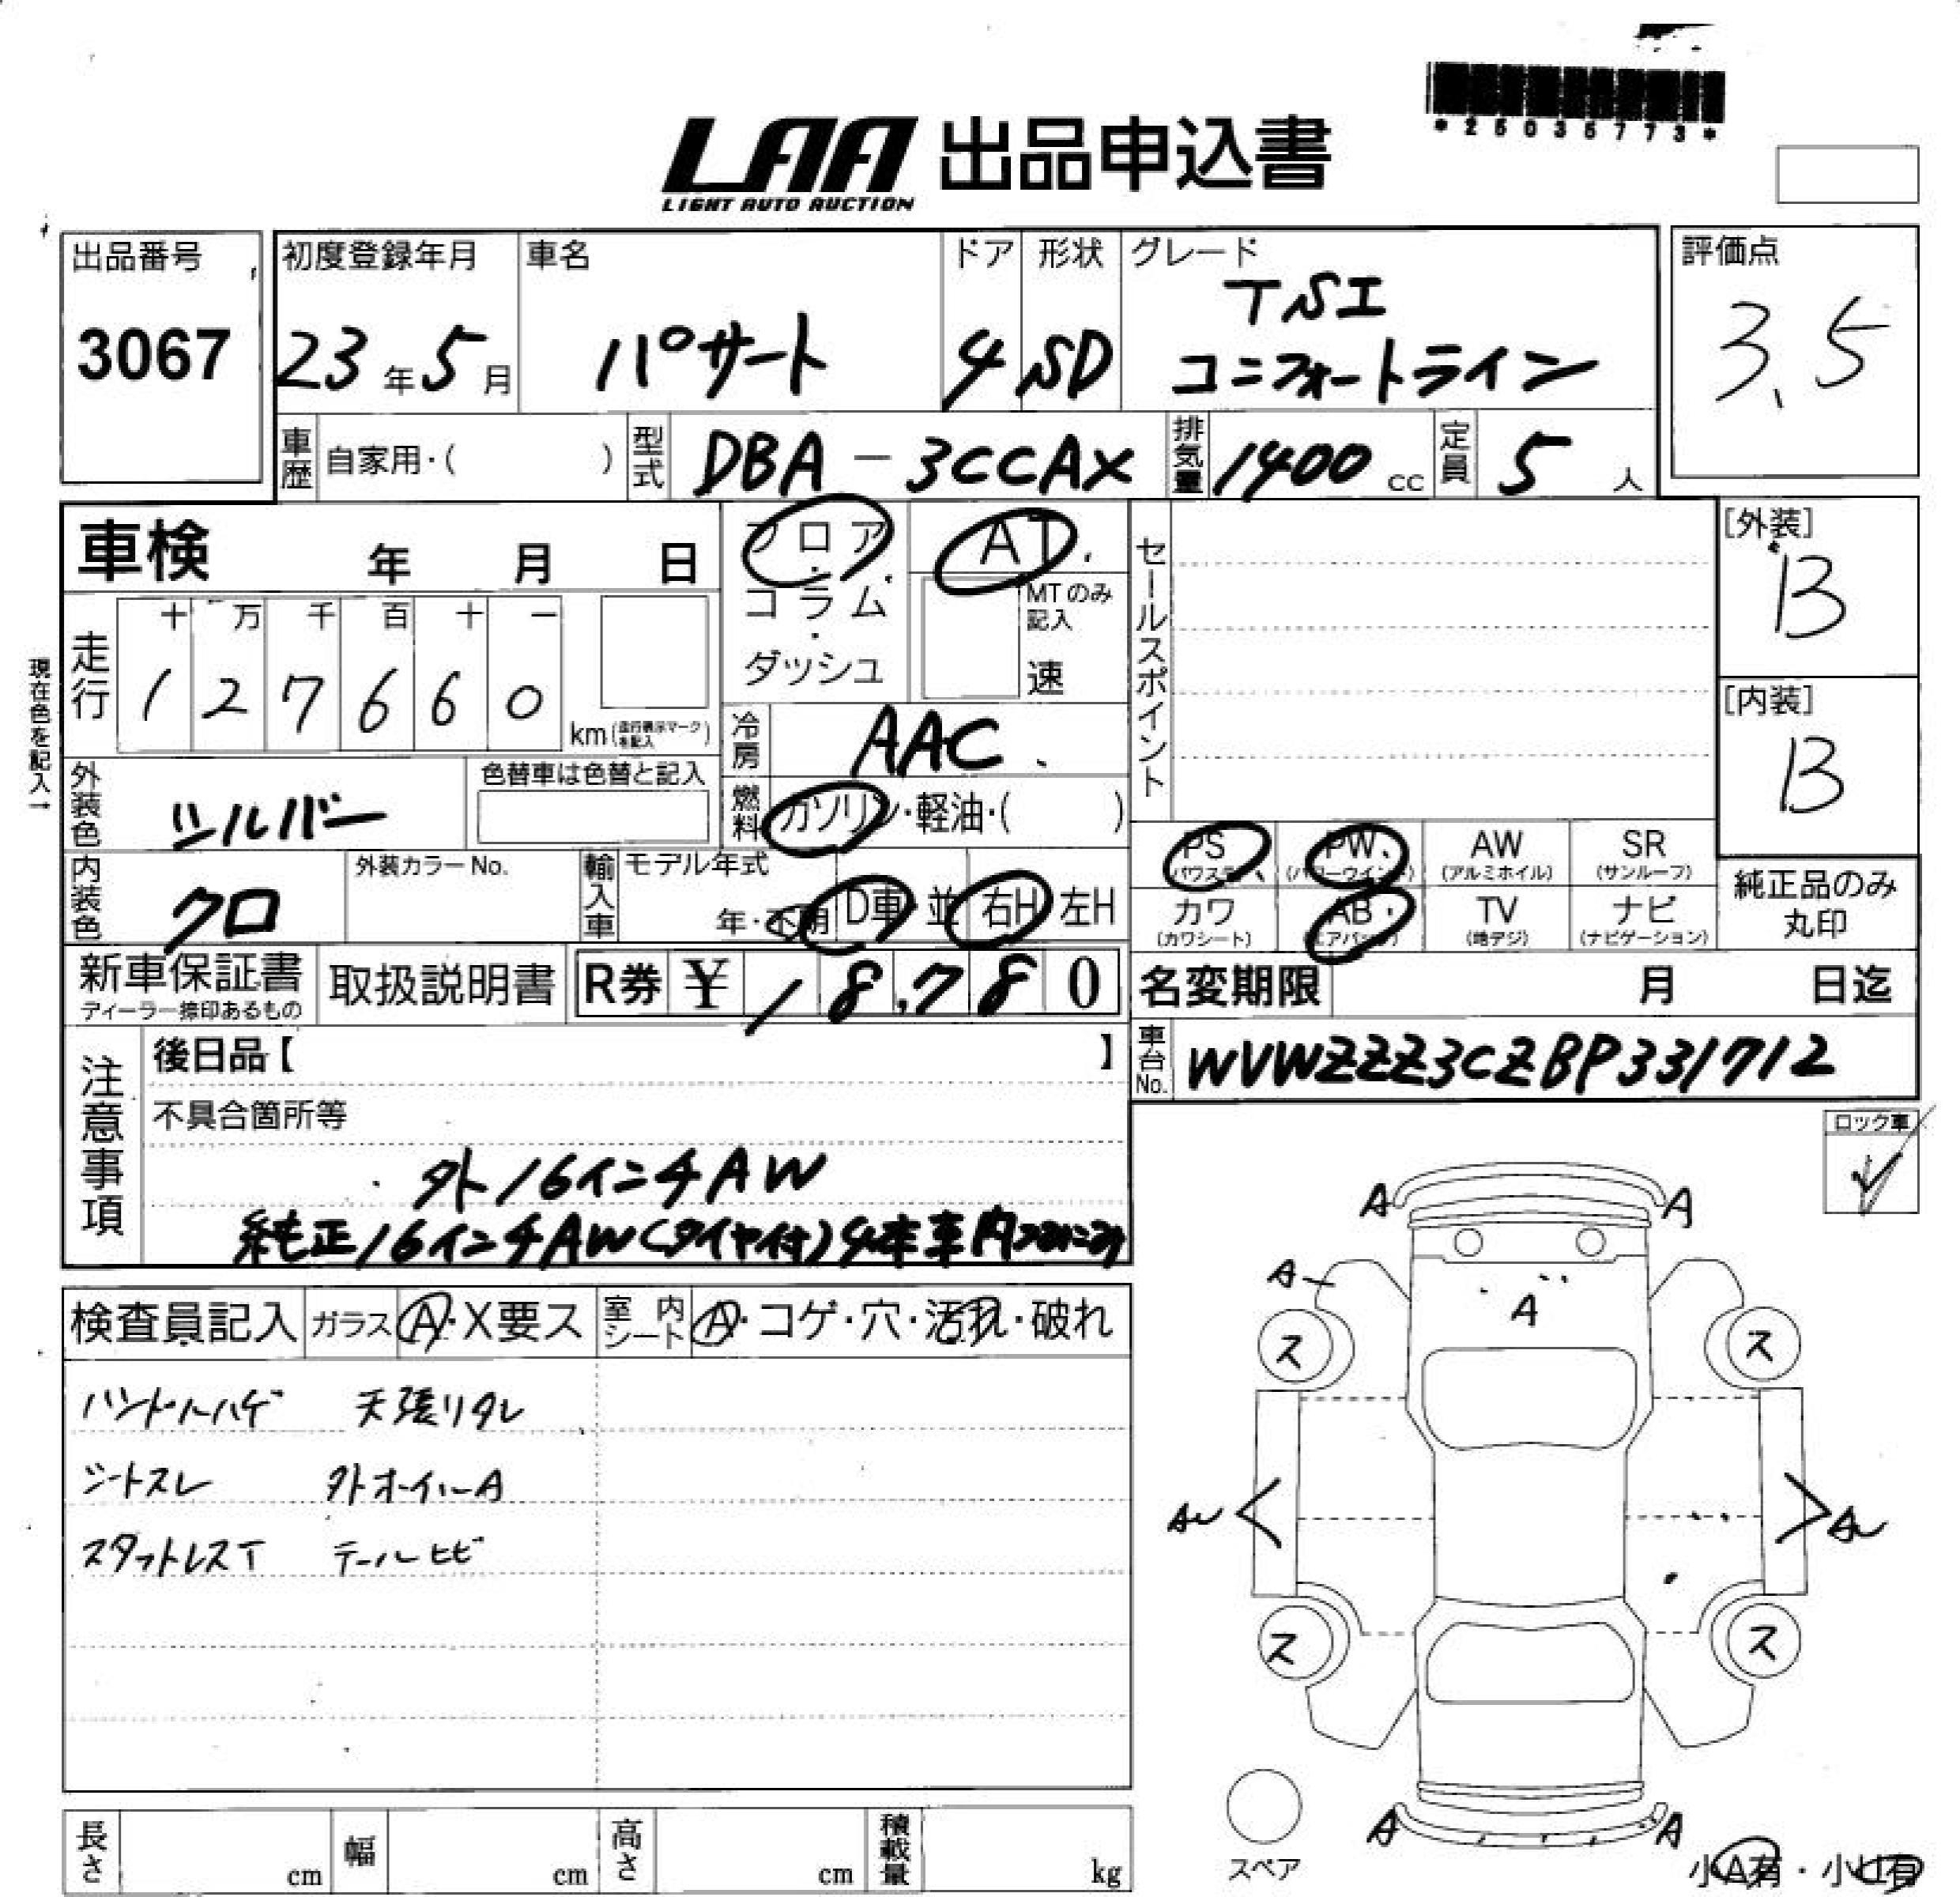 *25036773*
LAA 出品申込書
LIGHT AUTO AUCTION
出品番号 初度登録年月 車名 ドア 形状 グレード 評価点
3067 23年5月 パサート 4 SD TSI コンフォートライン 3.5
車歴 自家用・( ) 型式 DBA-3CCAX 排気量 1400 cc 定員 5 人
車検 年 月 日 フロア・コラム・ダッシュ AT MTのみ記入 速 セールスポイント [外装] B
走行 十 万 千 百 十 一
1 2 7 6 6 0 km (走行表示マークを記入) [内装] B
現在色を記入→
外装色 シルバー 色替車は色替と記入 冷房 AAC
燃料 ガソリン・軽油・( )
PS (パワステ) PW (パワーウインドウ) AW (アルミホイル) SR (サンルーフ)
内装色 クロ 外装カラーNo. 輸入車 モデル年式 年・不明 D車・並 右H 左H
カワ (カワシート) AB (エアバッグ) TV (地デジ) ナビ (ナビゲーション) 純正品のみ丸印
新車保証書 ディーラー捺印あるもの 取扱説明書 R券 ¥ 18,780 名変期限 月 日迄
注意事項 後日品【 】 車台No. WVWZZZ3CZBP331712
不具合箇所等
外16インチAW
純正16インチAW(タイヤ付)4本車内つみこみ
ロック車
検査員記入 ガラス A・X要ス 室内シート A・コゲ・穴・汚れ・破れ
ハンドルハゲ 天張りタレ
シートスレ 外ホイールA
スタットレスT テールヒビ
A A
A A
ス ス
AU AU
ス ス
A A
スペア
小A有・小U有
長さ cm 幅 cm 高さ cm 積載量 kg